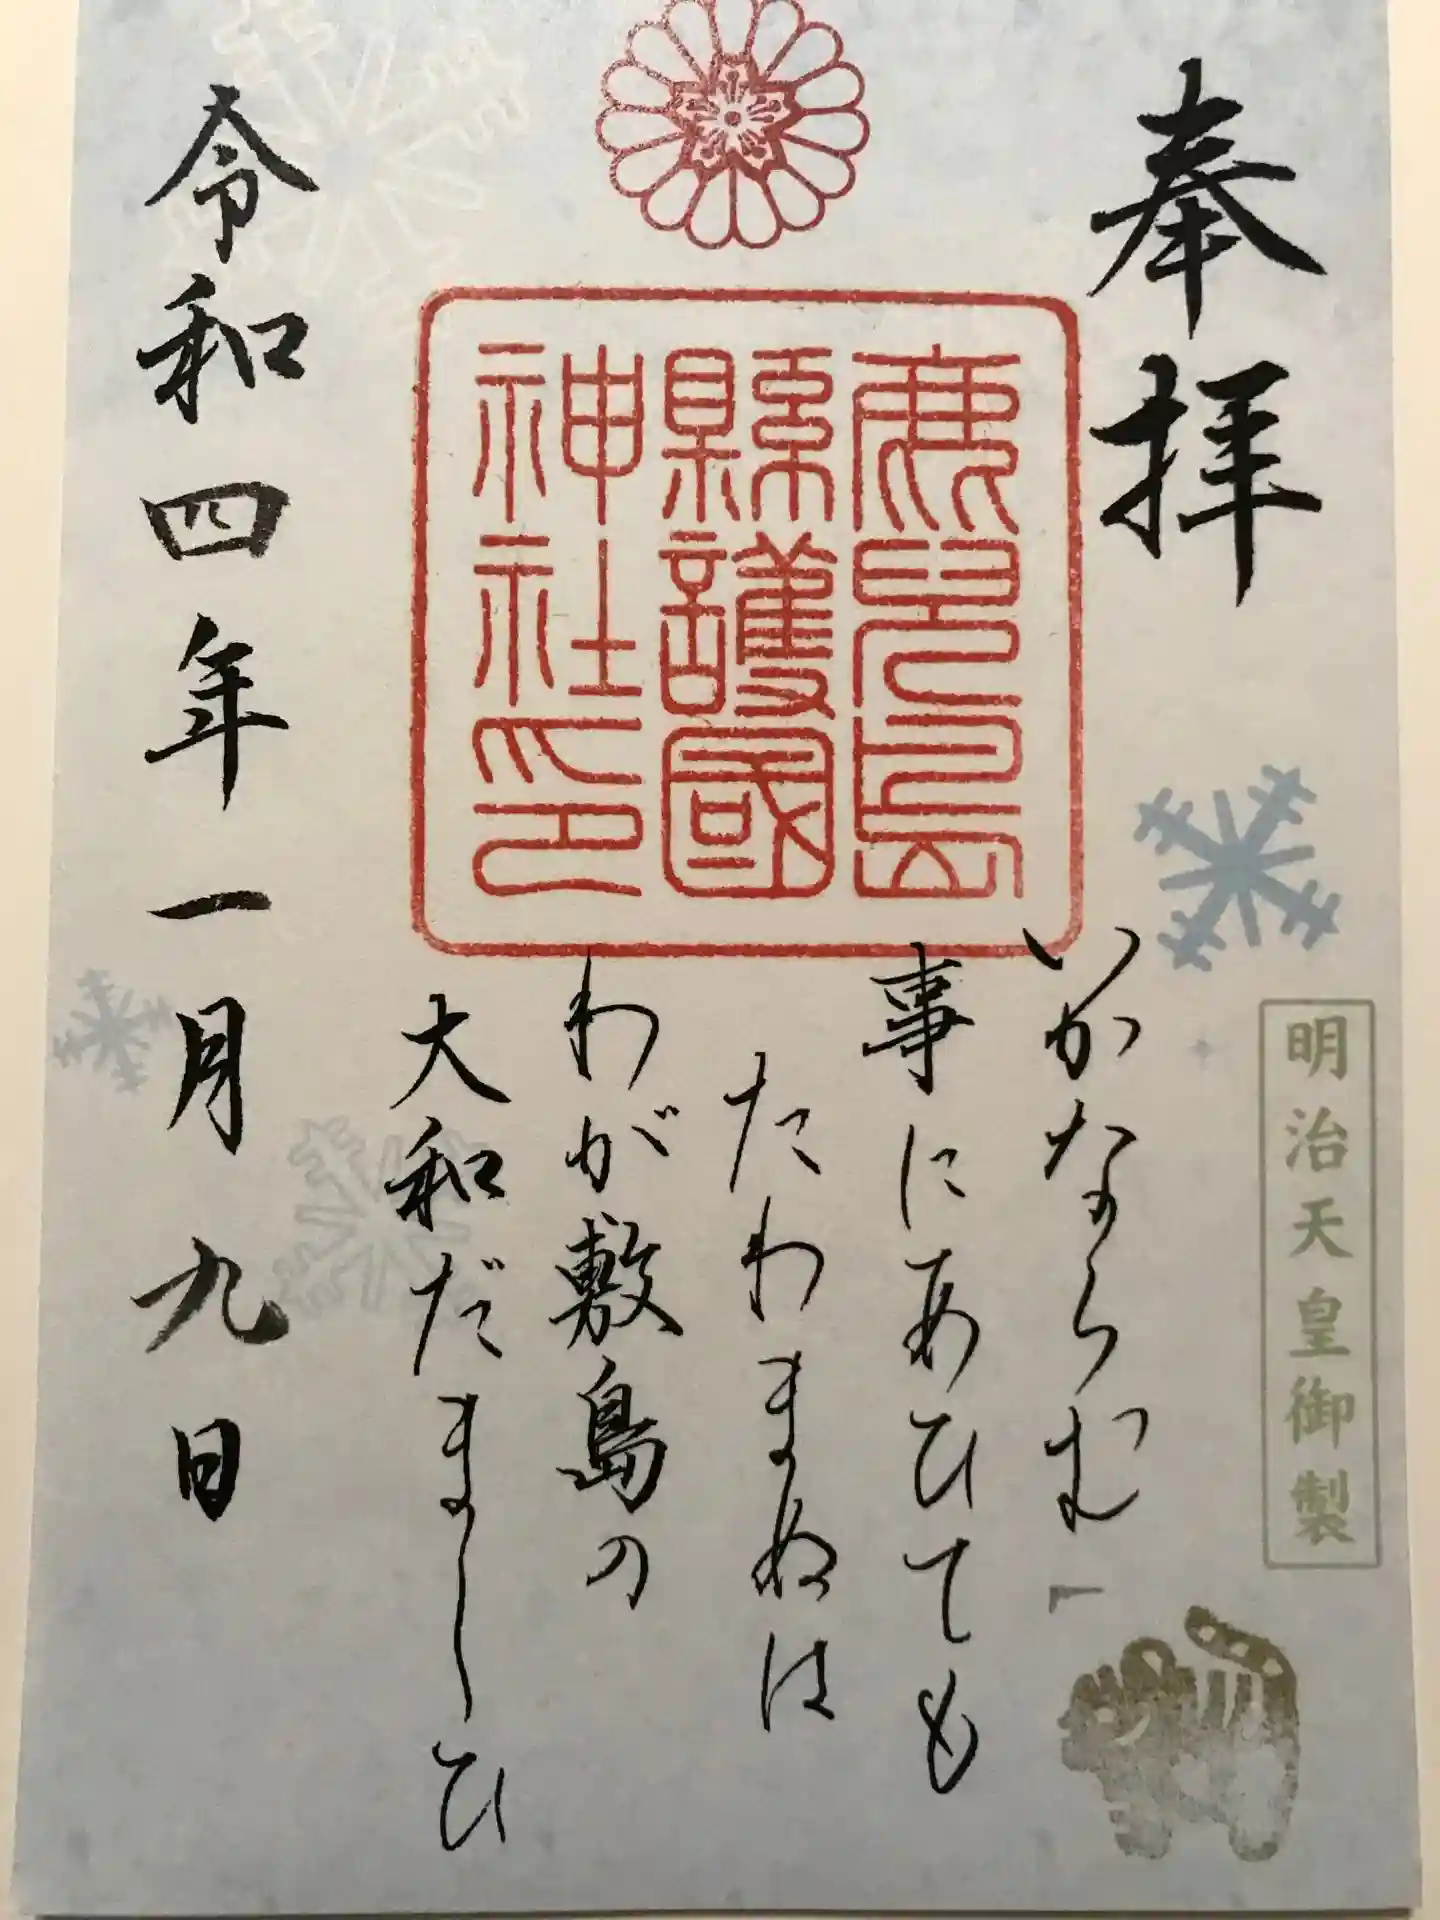 奉拝
明治天皇御製
いかならむ
事にあひても
たわまぬは
わが敷島の
大和だましひ
鹿児島
縣護國
神社印
令和四年一月九日